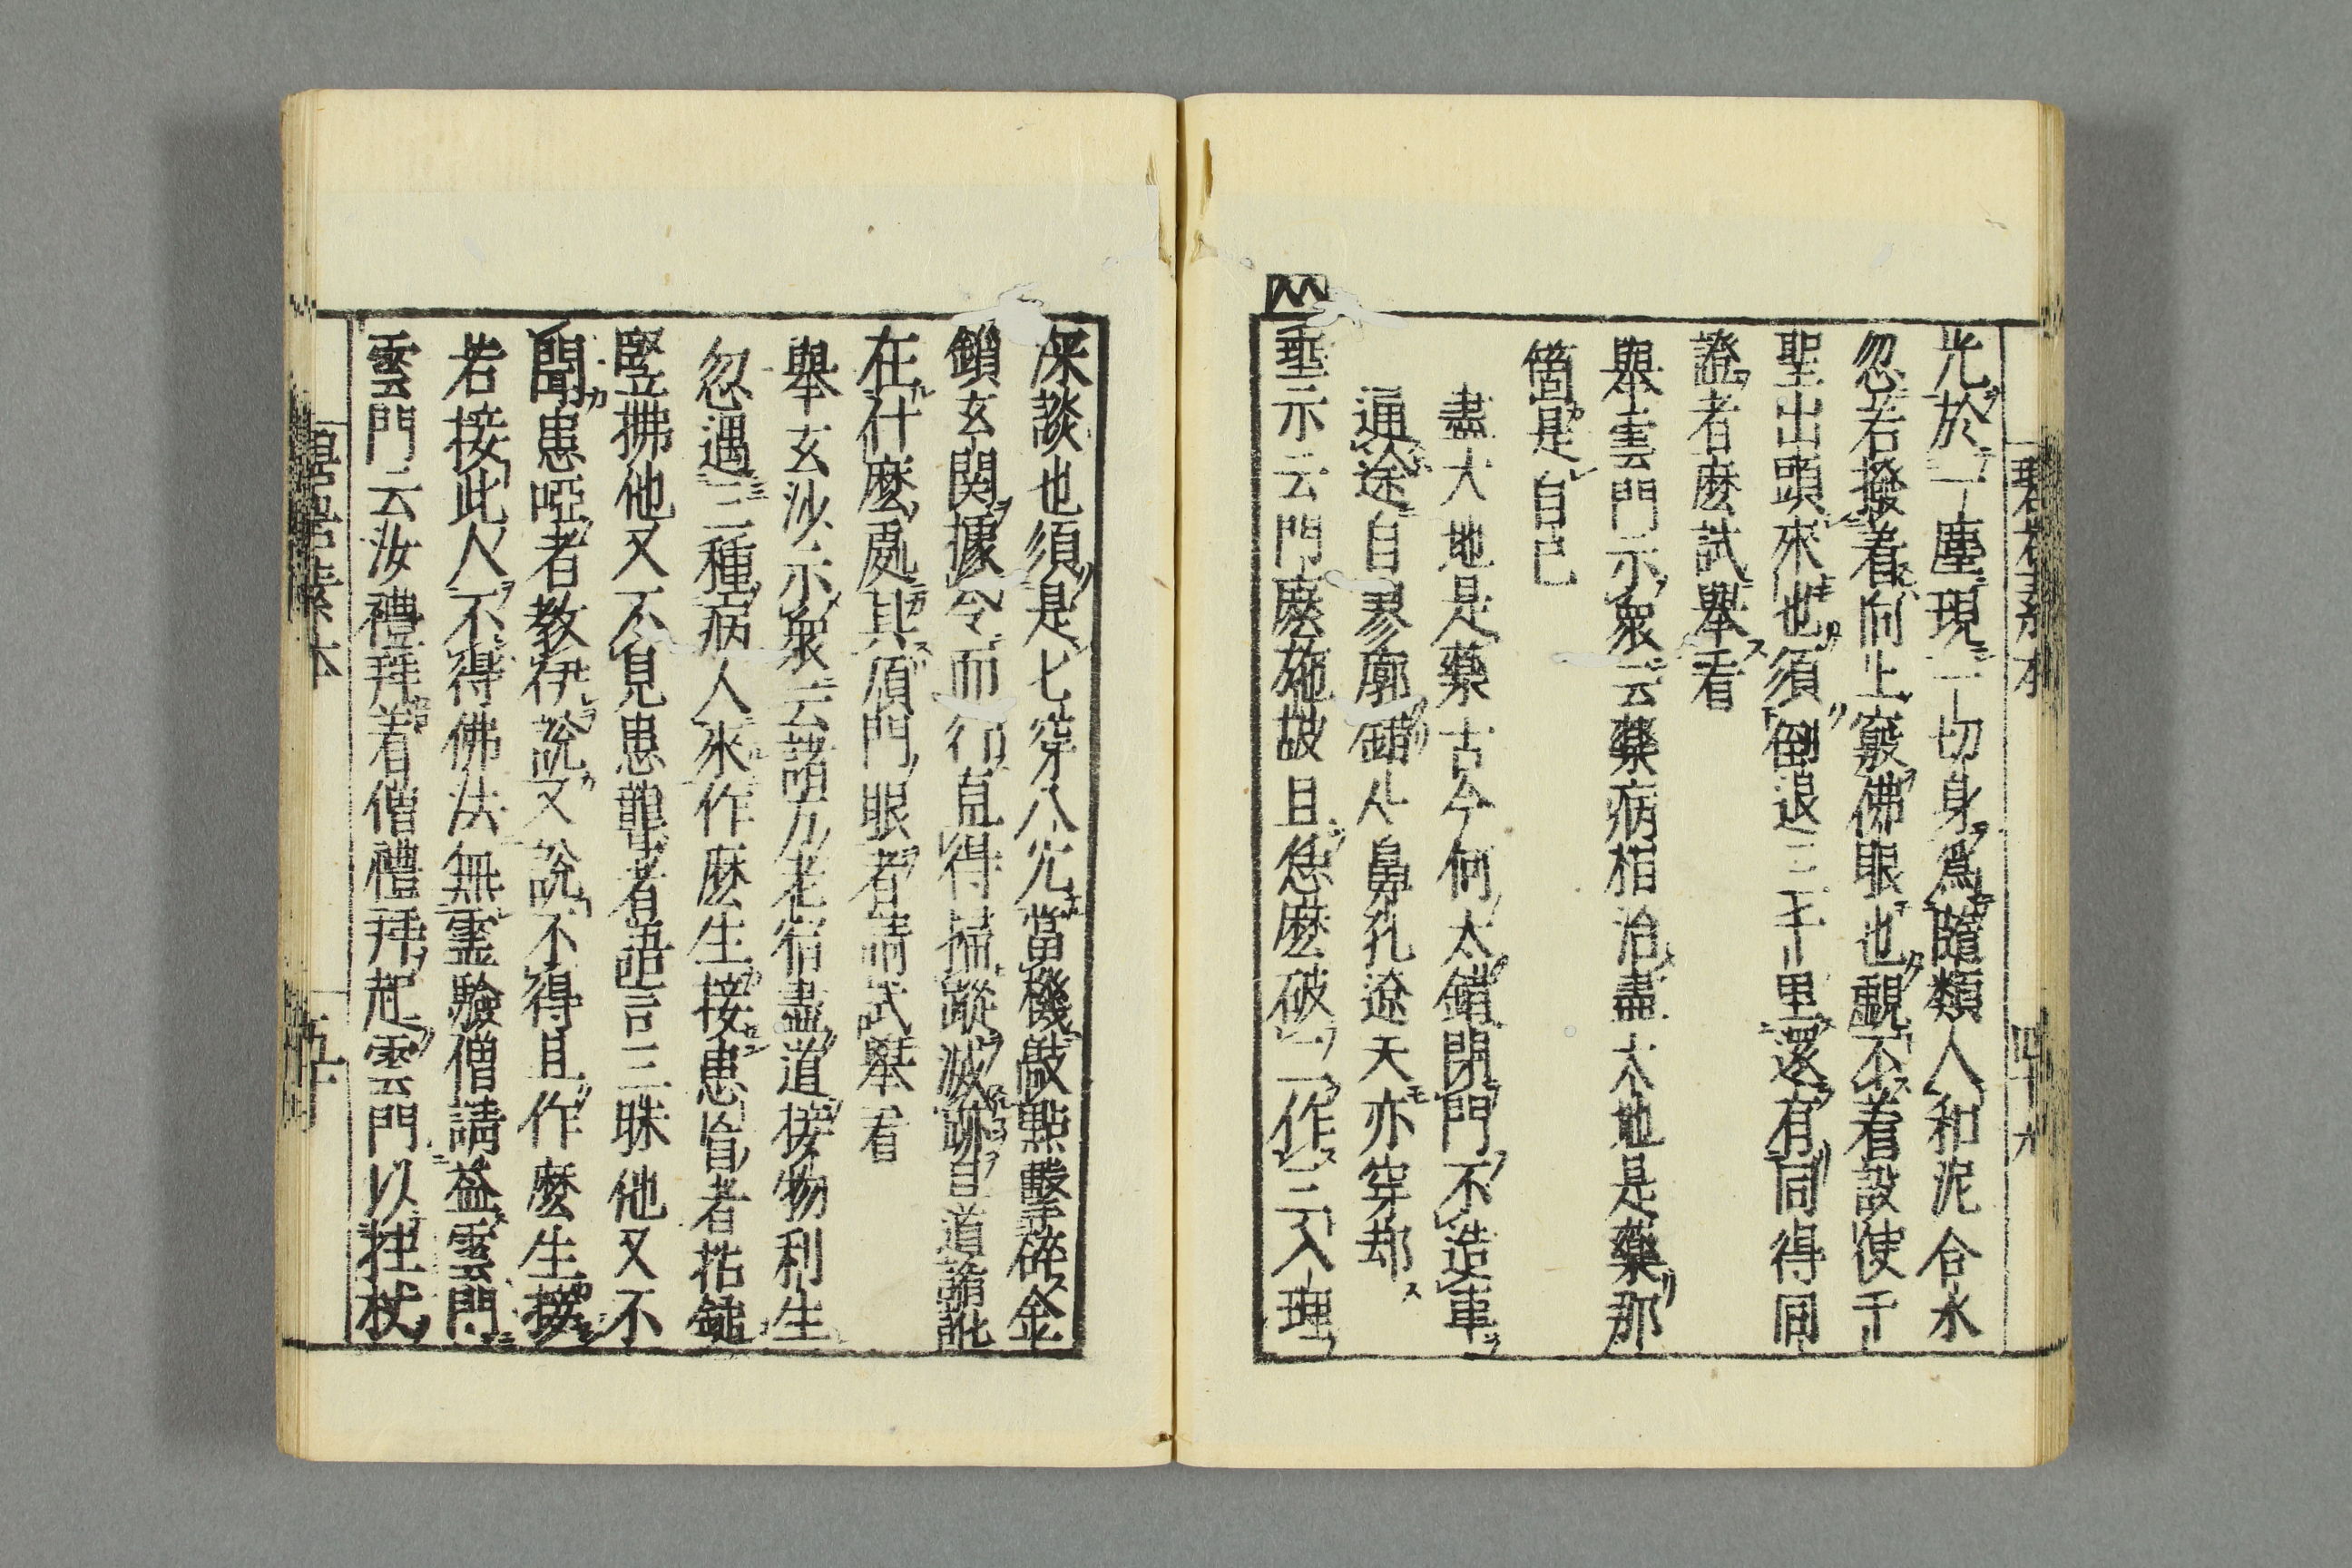 碧岩素本
四十九
光於一塵現一切身爲隨類人和泥合水
忽若撥着向上竅佛眼也覷不着設使千
聖出頭來也須倒退三千里還有同得同
證者麼試舉看
舉雲門示衆云藥病相治盡大地是藥那
箇是自己
盡大地是藥古今何太錯閉門不造車
通途自寥廓錯々鼻孔遼天亦穿却
垂示云門庭施設且恁麼破二作三入理
深談也須是七穿八穴當機敲點擊碎金
鎖玄關據令而行直得掃蹤滅跡且道誵訛
在什麼處具頂門眼者請試舉看
舉玄沙示衆云諸方老宿盡道接物利生
忽遇三種病人來作麼生接患盲者拈鎚
竪拂他又不見患聾者語言三昧他又不
聞患啞者教伊說又說不得且作麼生接
若接此人不得佛法無靈驗僧請益雲門
雲門云汝禮拜着僧禮拜起雲門以拄杖
碧岩素本
五十